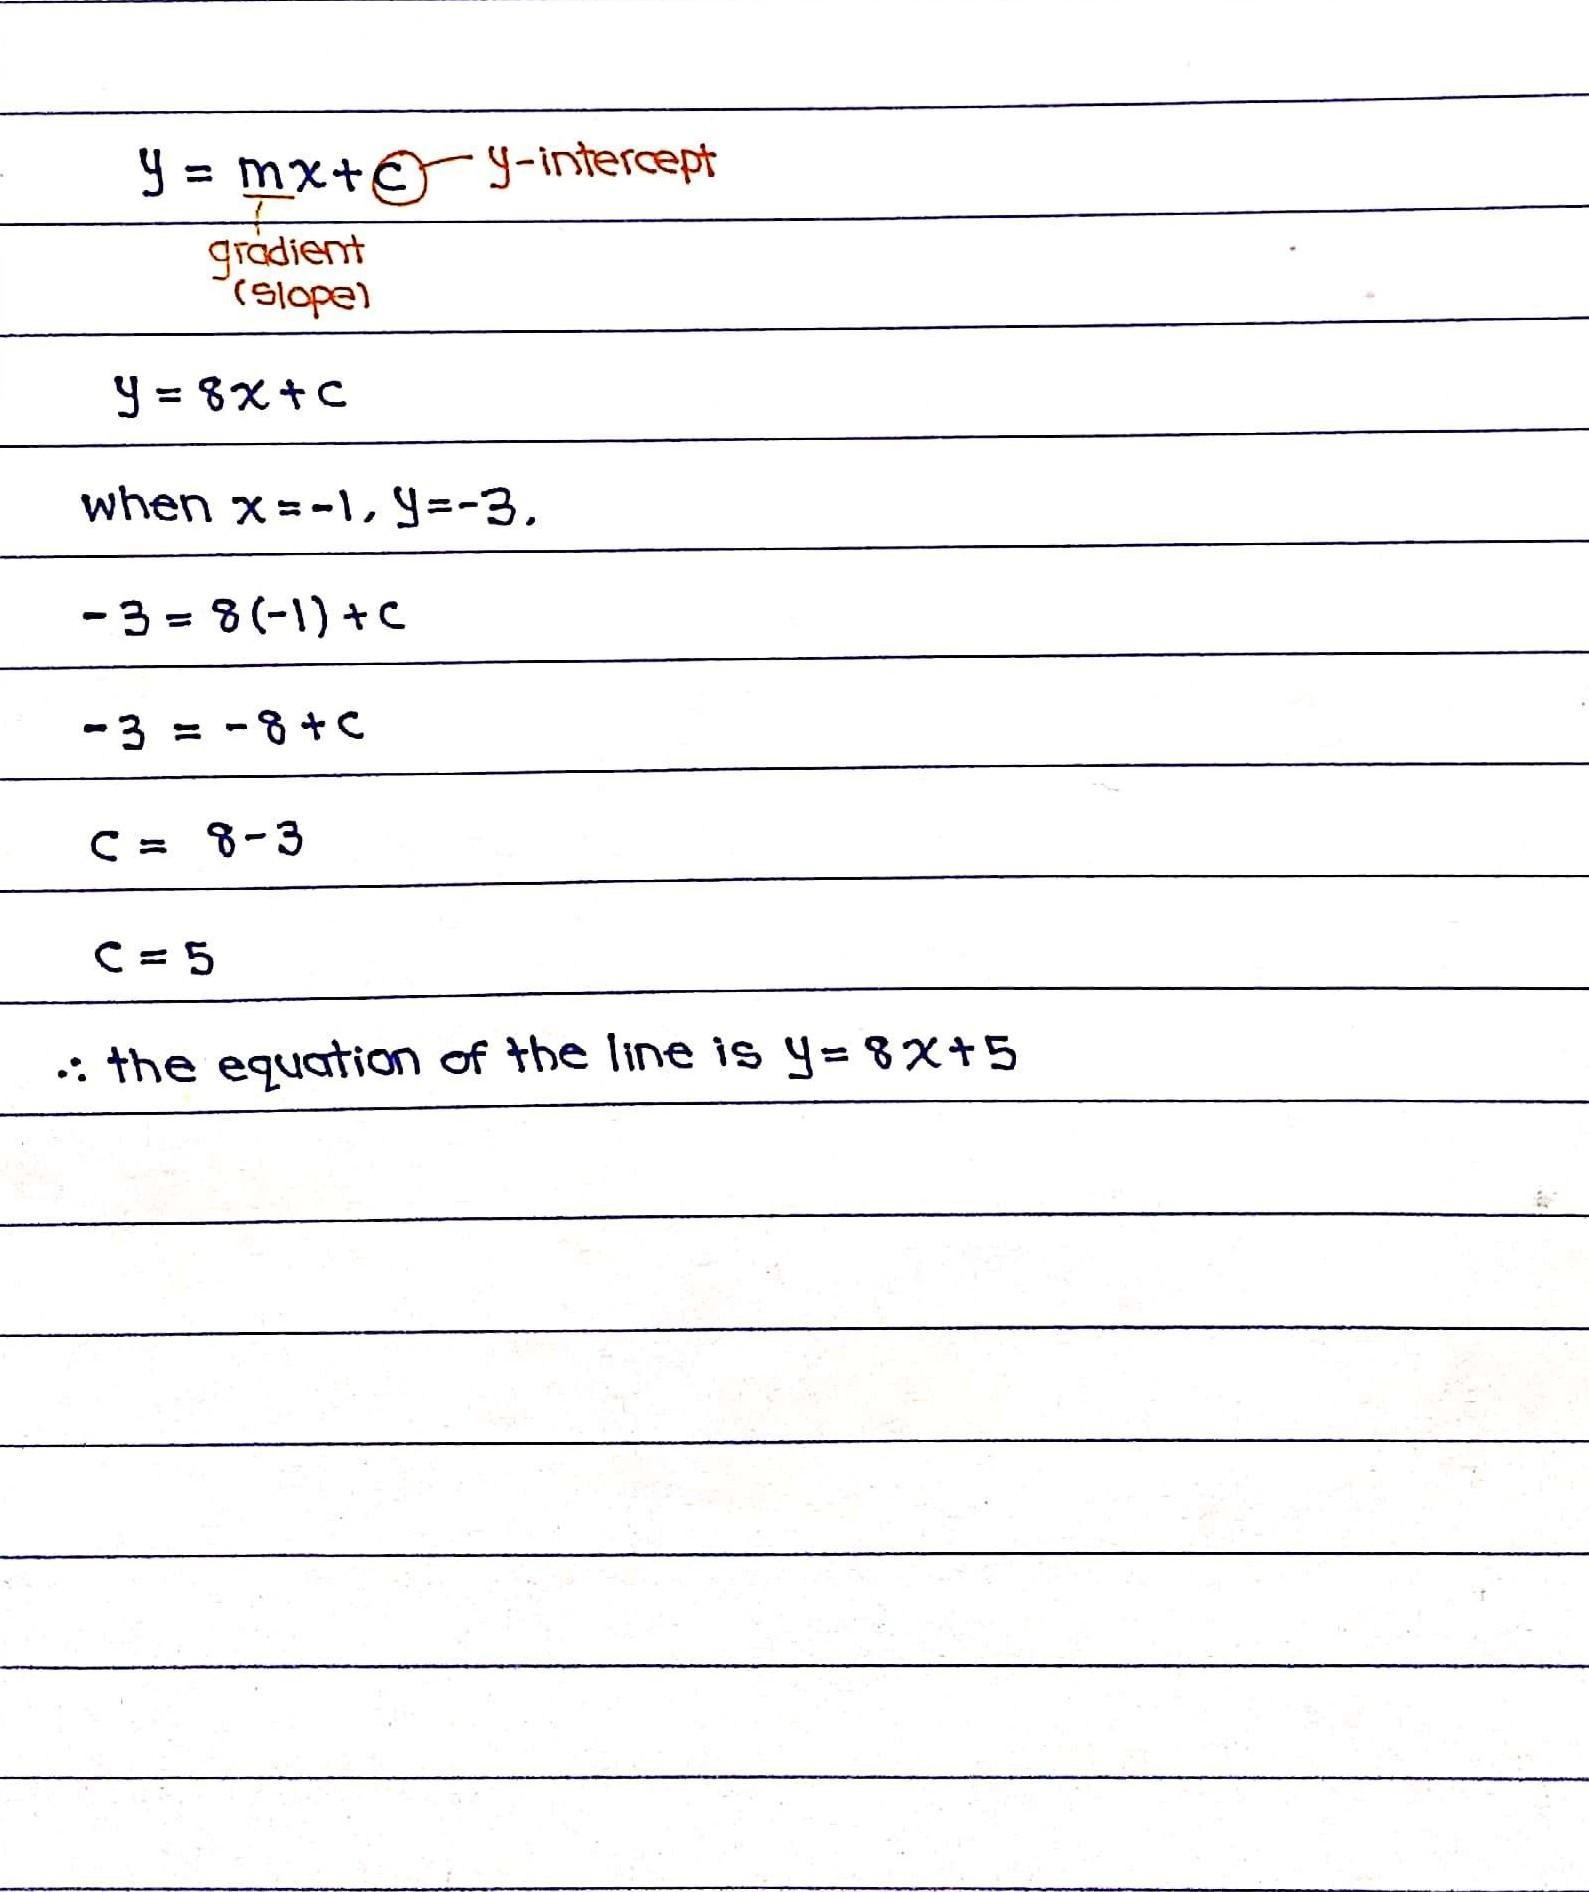 y = mx + c y-intercept
gradient
(slope)
y = 8x + c
when x = -1, y = -3.
-3 = 8(-1) + c
-3 = -8 + c
c = 8 - 3
c = 5
∴ the equation of the line is y = 8x + 5